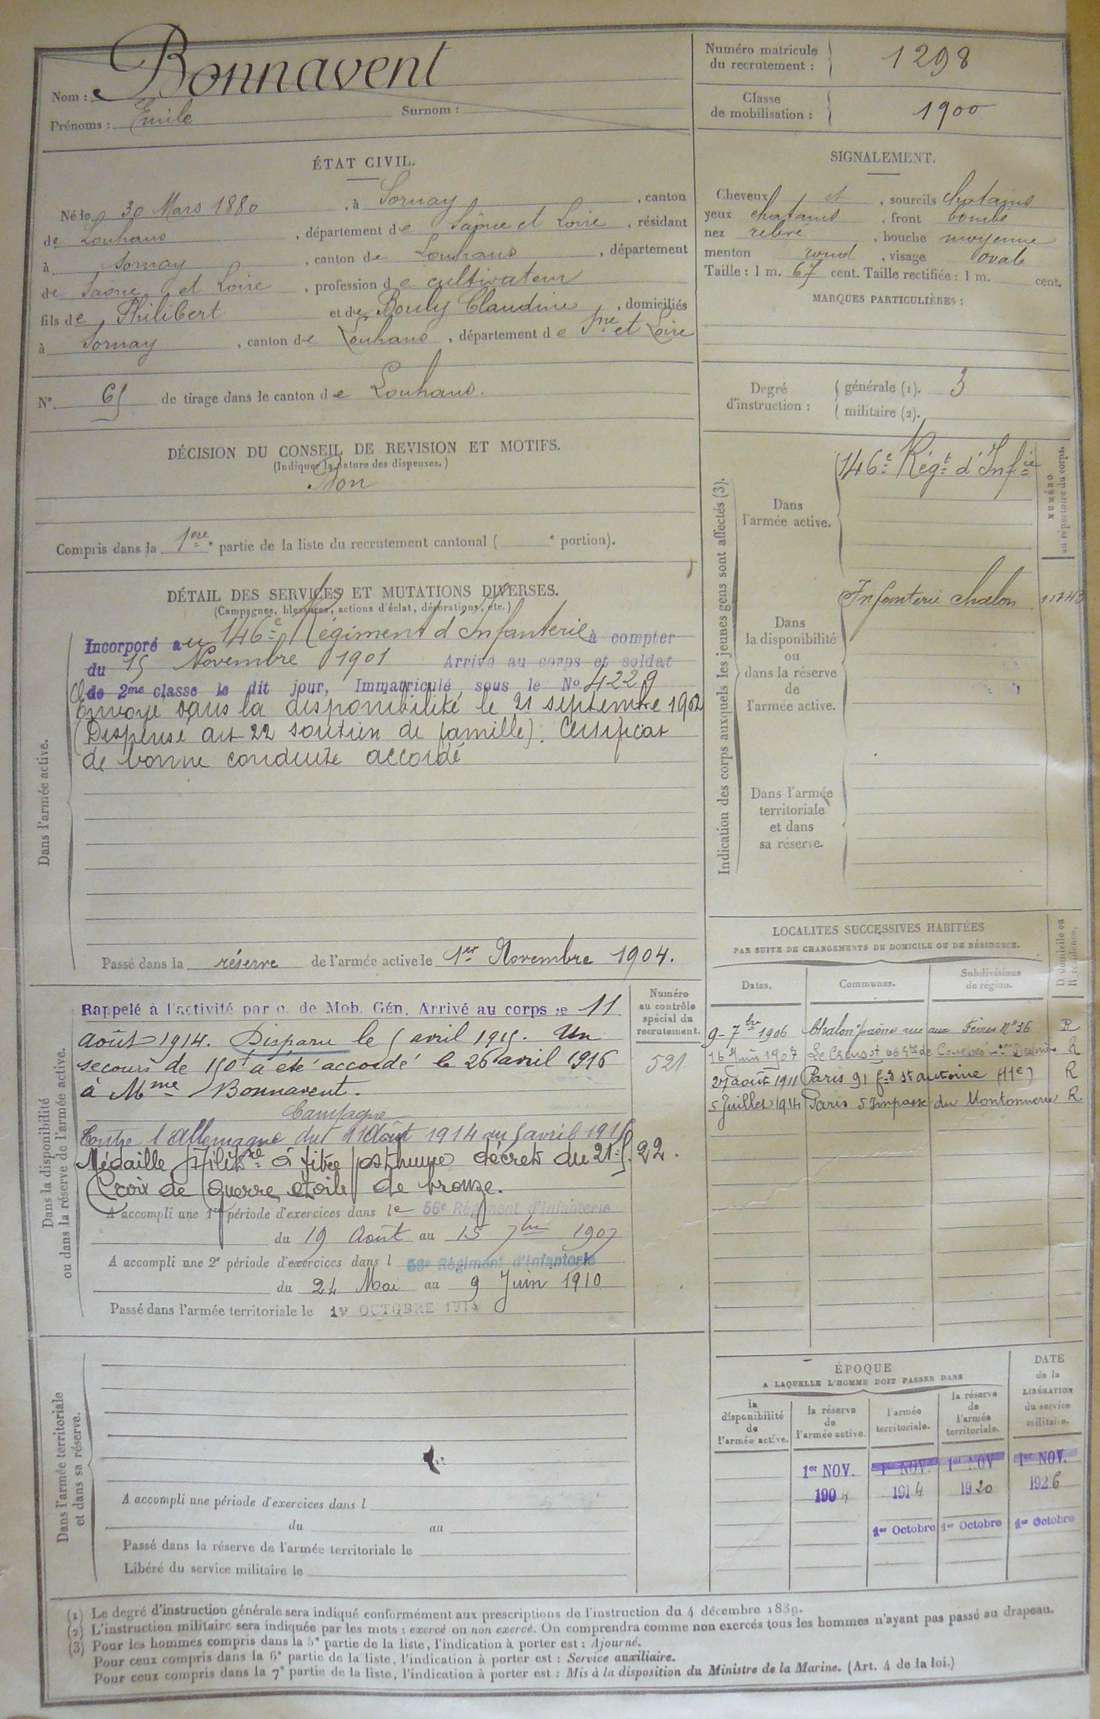 Nom : Bonnavent
Prénoms : Emile Surnom :
Numéro matricule du recrutement : 1298
Classe de mobilisation : 1900
ÉTAT CIVIL.
Né le 30 Mars 1880, à Sornay, canton
de Louhans, département de Saône et Loire, résidant
à Sornay, canton de Louhans, département
de Saône et Loire, profession de cultivateur
fils de Philibert et de Bouly Claudine, domiciliés
à Sornay, canton de Louhans, département de Sne et Loire
N° 65 de tirage dans le canton de Louhans.
SIGNALEMENT.
Cheveux et, sourcils chatains
yeux chatains, front bombé
nez relevé, bouche moyenne
menton rond, visage ovale
Taille : 1 m. 67 cent. Taille rectifiée : 1 m. cent.
MARQUES PARTICULIÈRES :
Degré d'instruction : générale (1). 3
militaire (2).
DÉCISION DU CONSEIL DE REVISION ET MOTIFS.
(Indiquer la nature des dispenses.)
Bon
Compris dans la 1ere partie de la liste du recrutement cantonal ( e portion).
DÉTAIL DES SERVICES ET MUTATIONS DIVERSES.
(Campagnes, blessures, actions d'éclat, décorations, etc.)
Dans l'armée active.
Incorporé au 146e Régiment d'Infanterie à compter
du 15 Novembre 1901 Arrivé au corps et soldat
de 2me classe le dit jour, Immatriculé sous le No 4229
Envoyé dans la disponibilité le 21 septembre 1902
(Dispensé art 22 soutien de famille). Certificat
de bonne conduite accordé
Passé dans la réserve de l'armée active le 1er Novembre 1904.
Indication des corps auxquels les jeunes gens sont affectés (3).
Dans l'armée active.
146e Régt d'Infie
NUMÉRO au répertoire du corps.
Dans la disponibilité ou dans la réserve de l'armée active.
Infanterie Chalon
Dans l'armée territoriale et dans sa réserve.
Dans la disponibilité ou dans la réserve de l'armée active.
Rappelé à l'activité par o. de Mob. Gén. Arrivé au corps le 11
août 1914. Disparu le 5 avril 1915. Un
secours de 150f a été accordé le 26 avril 1916
à Mme Bonnavent.
Campagne
Contre l'Allemagne du 11 Août 1914 au 5 avril 1915
Médaille Militre à titre posthume décrets du 22.
Croix de guerre étoile de bronze.
A accompli une 1re période d'exercices dans le 56e Régiment d'Infanterie
du 19 Août au 15 7bre 1907
A accompli une 2e période d'exercices dans l 56e Régiment d'Infanterie
du 24 Mai au 9 Juin 1910
Passé dans l'armée territoriale le 1er OCTOBRE 1914
Numéro au contrôle spécial du recrutement.
521
LOCALITÉS SUCCESSIVES HABITÉES
PAR SUITE DE CHANGEMENTS DE DOMICILE OU DE RÉSIDENCE.
Dates. Communes. Subdivisions de région. D domicile ou R résidence.
9-7bre 1906 Chalon s/Saône rue aux Fèvres No 36 R
16 Juin 1907 Le Creusot R
27 août 1911 Paris 91 fg St antoine (11e) R
5 Juillet 1914 Paris 5 Impasse du R
Dans l'armée territoriale et dans sa réserve.
A accompli une période d'exercices dans l
du au
Passé dans la réserve de l'armée territoriale le
Libéré du service militaire le
ÉPOQUE
A LAQUELLE L'HOMME DOIT PASSER DANS
la disponibilité de l'armée active. la réserve de l'armée active. l'armée territoriale. la réserve de l'armée territoriale. DATE de la LIBÉRATION du service militaire.
1er NOV. 1er NOV. 1er NOV 1er NOV.
1904 1914 1920 1926
1er Octobre 1er Octobre 1er Octobre
(1) Le degré d'instruction générale sera indiqué conformément aux prescriptions de l'instruction du 4 décembre 1889.
(2) L'instruction militaire sera indiquée par les mots : exercé ou non exercé. On comprendra comme non exercés tous les hommes n'ayant pas passé au drapeau.
(3) Pour les hommes compris dans la 5e partie de la liste, l'indication à porter est : Ajourné.
Pour ceux compris dans la 6e partie de la liste, l'indication à porter est : Service auxiliaire.
Pour ceux compris dans la 7e partie de la liste, l'indication à porter est : Mis à la disposition du Ministre de la Marine. (Art. 4 de la loi.)